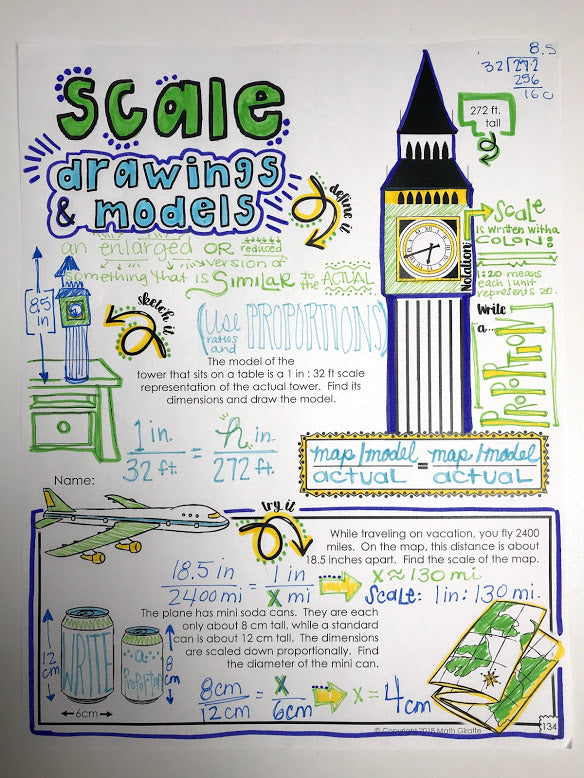 scale
drawings
& models
8.5
32 272
256
160
272 ft.
tall
define it
an enlarged OR reduced
version of
something that is Similar to the ACTUAL
Scale
is written with a
COLON:
Notation:
1:20 means
each 1 unit
represents 20.
Write
a...
PROPORTION!
8.5
in
sketch it
(Use
ratios
and PROPORTIONS)
The model of the
tower that sits on a table is a 1 in : 32 ft scale
representation of the actual tower. Find its
dimensions and draw the model.
1 in. = h in.
32 ft. 272 ft.
map/model = map/model
actual actual
Name:
try it
While traveling on vacation, you fly 2400
miles. On the map, this distance is about
18.5 inches apart. Find the scale of the map.
18.5 in = 1 in
2400 mi X mi
X ≈ 130 mi
Scale: 1in: 130 mi.
The plane has mini soda cans. They are each
only about 8 cm tall, while a standard
can is about 12 cm tall. The dimensions
are scaled down proportionally. Find
the diameter of the mini can.
12
cm
WRITE
a
Proportion
8
cm
6cm
8cm = X
12cm 6cm
x = 4cm
© Copyright 2018 Math Giraffe
134